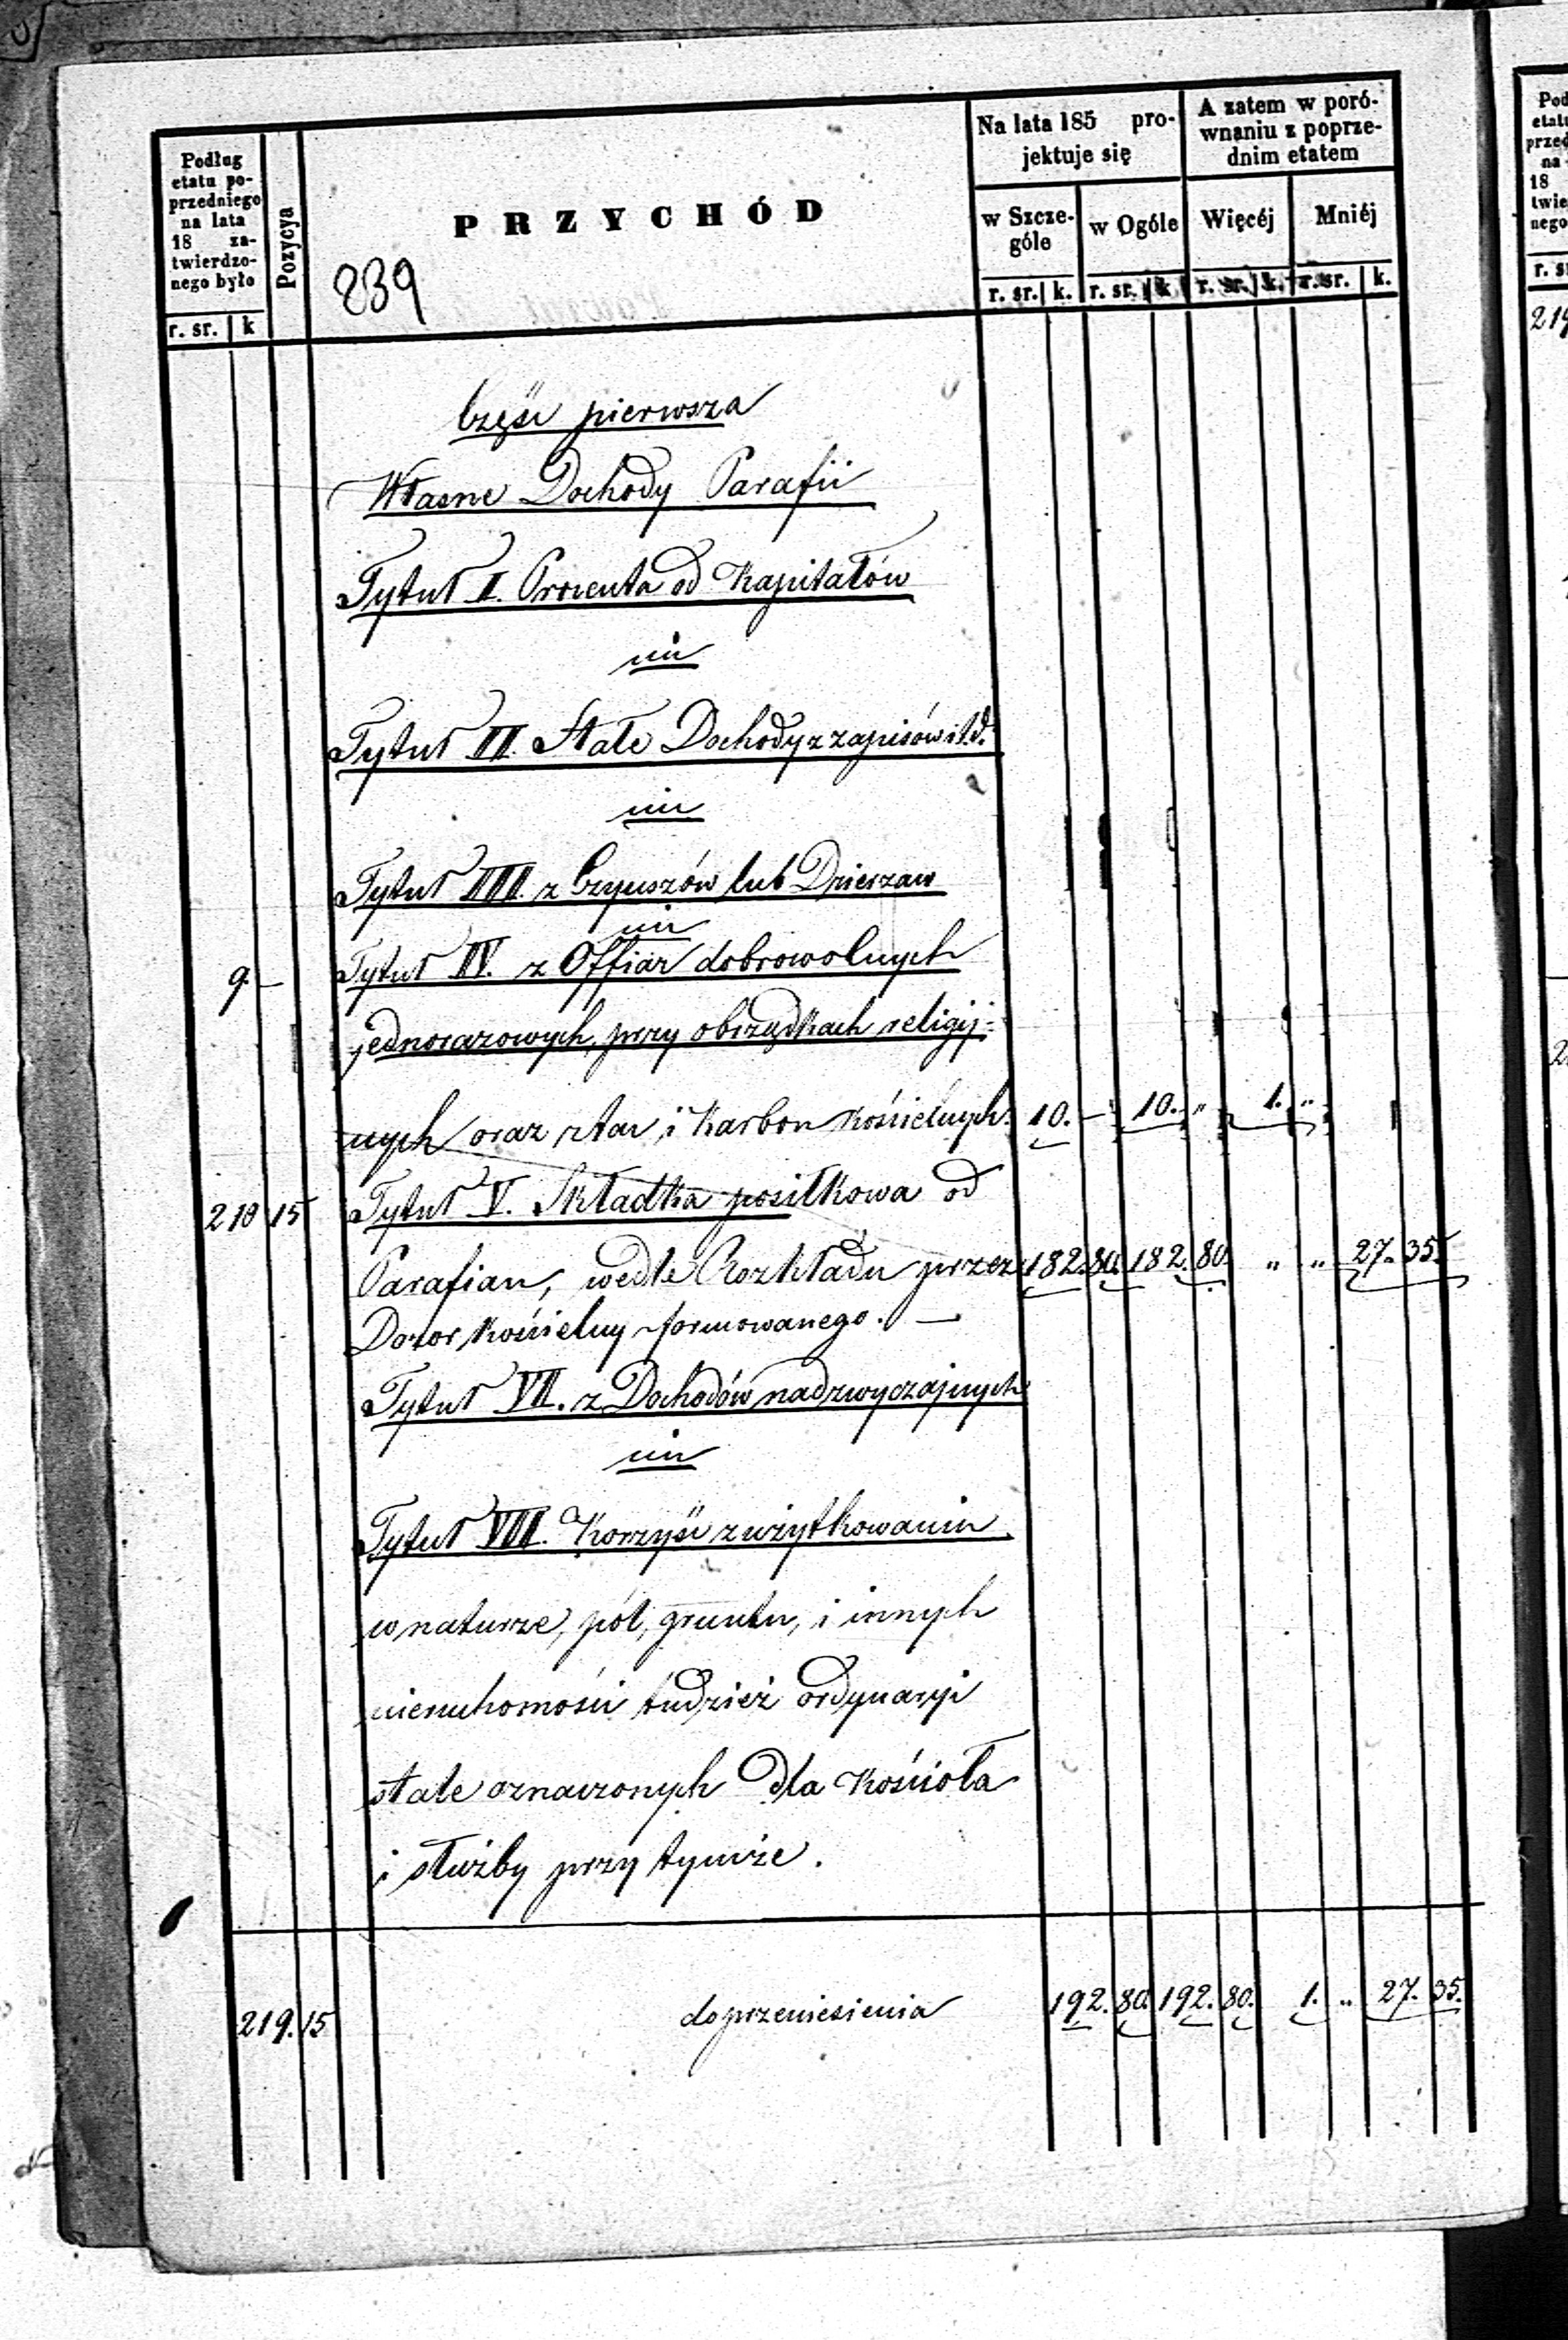 Podług etatu poprzedniego na lata 18 zatwierdzonego było
Pozycya
PRZYCHÓD
Na lata 185 projektuje się
A zatem w porównaniu z poprzednim etatem
w Szczególe
w Ogóle
Więcéj
Mniéj
r. sr. k
r. sr. k. r. sr. k r. sr. k. r. sr. k.
839
Część pierwsza
Własne Dochody Parafii
Tytuł I. Procenta od Kapitałów
nic
Tytuł II. Stałe Dochody z zapisów itd.
nic
Tytuł III. z Czynszów lub Dzierzaw
nic
9. — Tytuł IV. z Offiar dobrowolnych
jednorazowych, przy obrządkach religij-
nych oraz z tac i Karbon Kościelnych. 10. — 10. „ 1. „
210 15 Tytuł V. Składka posiłkowa od
Parafian, wedle Rozkładu przez 182. 80. 182. 80. „ „ 27. 35.
Dozor Kościelny formowanego. —
Tytuł VI. z Dochodów nadzwyczajnych
nic
Tytuł VII. Korzyści z użytkowania
w naturze, pól, gruntu, i innych
nieruchomości tudzież ordynaryi
stale oznaczonych dla Kościoła
i służby przy tymże.
219. 15 do przeniesienia 192. 80. 192. 80. 1. „ 27. 35.